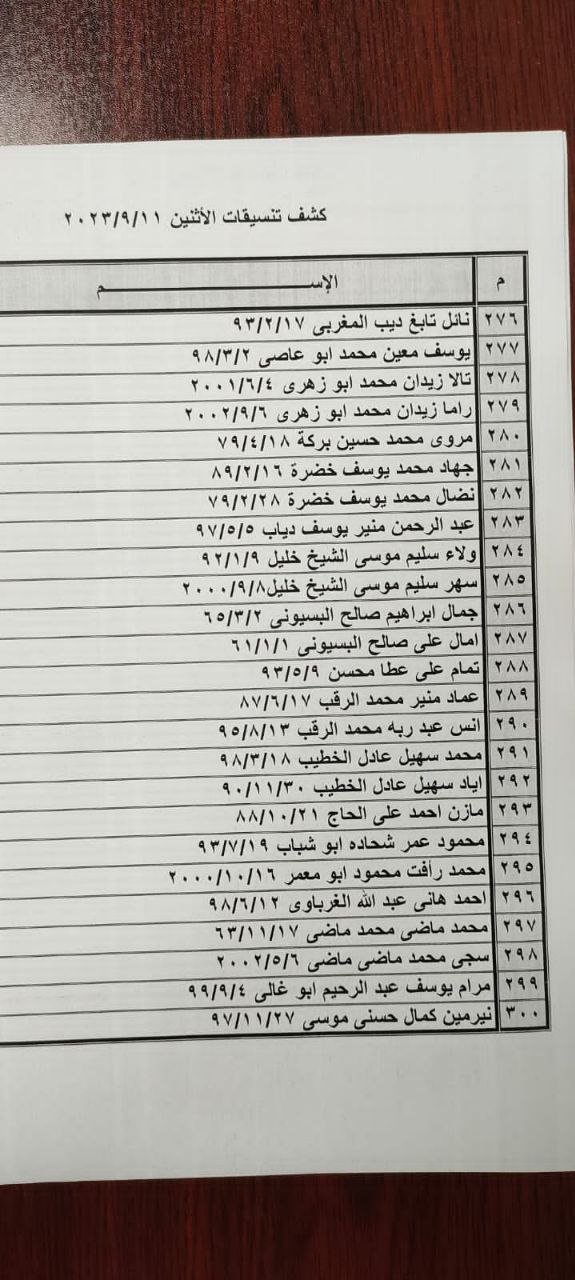 كشف تنسيقات الأثنين ٢٠٢٣/٩/١١
م الإســـــــــــــم
٢٧٦ نائل تابغ ديب المغربى ٩٣/٢/١٧
٢٧٧ يوسف معين محمد ابو عاصى ٩٨/٣/٢
٢٧٨ تالا زيدان محمد ابو زهرى ٢٠٠١/٦/٤
٢٧٩ راما زيدان محمد ابو زهرى ٢٠٠٢/٩/٦
٢٨٠ مروى محمد حسين بركة ٧٩/٤/١٨
٢٨١ جهاد محمد يوسف خضرة ٨٩/٢/١٦
٢٨٢ نضال محمد يوسف خضرة ٧٩/٢/٢٨
٢٨٣ عبد الرحمن منير يوسف دياب ٩٧/٥/٥
٢٨٤ ولاء سليم موسى الشيخ خليل ٩٢/١/٩
٢٨٥ سهر سليم موسى الشيخ خليل٢٠٠٠/٩/٨
٢٨٦ جمال ابراهيم صالح البسيونى ٦٥/٣/٢
٢٨٧ امال على صالح البسيونى ٦١/١/١
٢٨٨ تمام على عطا محسن ٩٣/٥/٩
٢٨٩ عماد منير محمد الرقب ٨٧/٦/١٧
٢٩٠ انس عبد ربه محمد الرقب ٩٥/٨/١٣
٢٩١ محمد سهيل عادل الخطيب ٩٨/٣/١٨
٢٩٢ اياد سهيل عادل الخطيب ٩٠/١١/٣٠
٢٩٣ مازن احمد على الحاج ٨٨/١٠/٢١
٢٩٤ محمود عمر شحاده ابو شباب ٩٣/٧/١٩
٢٩٥ محمد رأفت محمود ابو معمر ٢٠٠٠/١٠/١٦
٢٩٦ احمد هانى عبد الله الغرباوى ٩٨/٦/١٢
٢٩٧ محمد ماضى محمد ماضى ٦٣/١١/١٧
٢٩٨ سجى محمد ماضى ماضى ٢٠٠٢/٥/٦
٢٩٩ مرام يوسف عبد الرحيم ابو غالى ٩٩/٩/٤
٣٠٠ نيرمين كمال حسنى موسى ٩٧/١١/٢٧